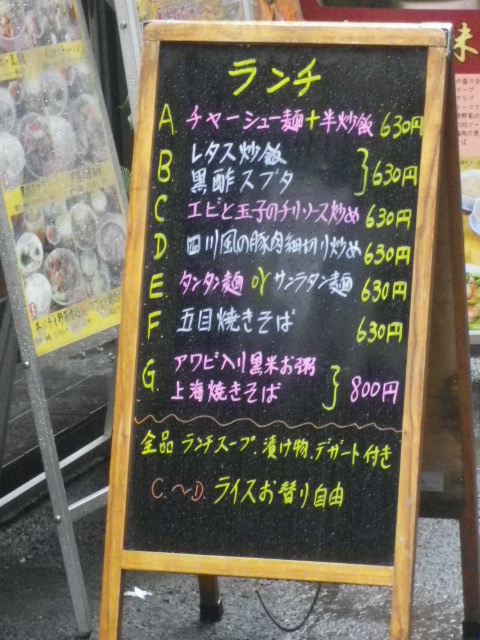 ランチ
A. チャーシュー麺+半炒飯 630円
B. レタス炒飯
黒酢スブタ } 630円
C エビと玉子のチリソース炒め 630円
D. 四川風の豚肉細切り炒め 630円
E. タンタン麺 or サンラタン麺 630円
F 五目焼きそば 630円
G. アワビ入り黒米お粥
上海焼きそば } 800円
全品 ランチスープ、漬け物、デザート付き
C.〜D. ライスお替り自由
味